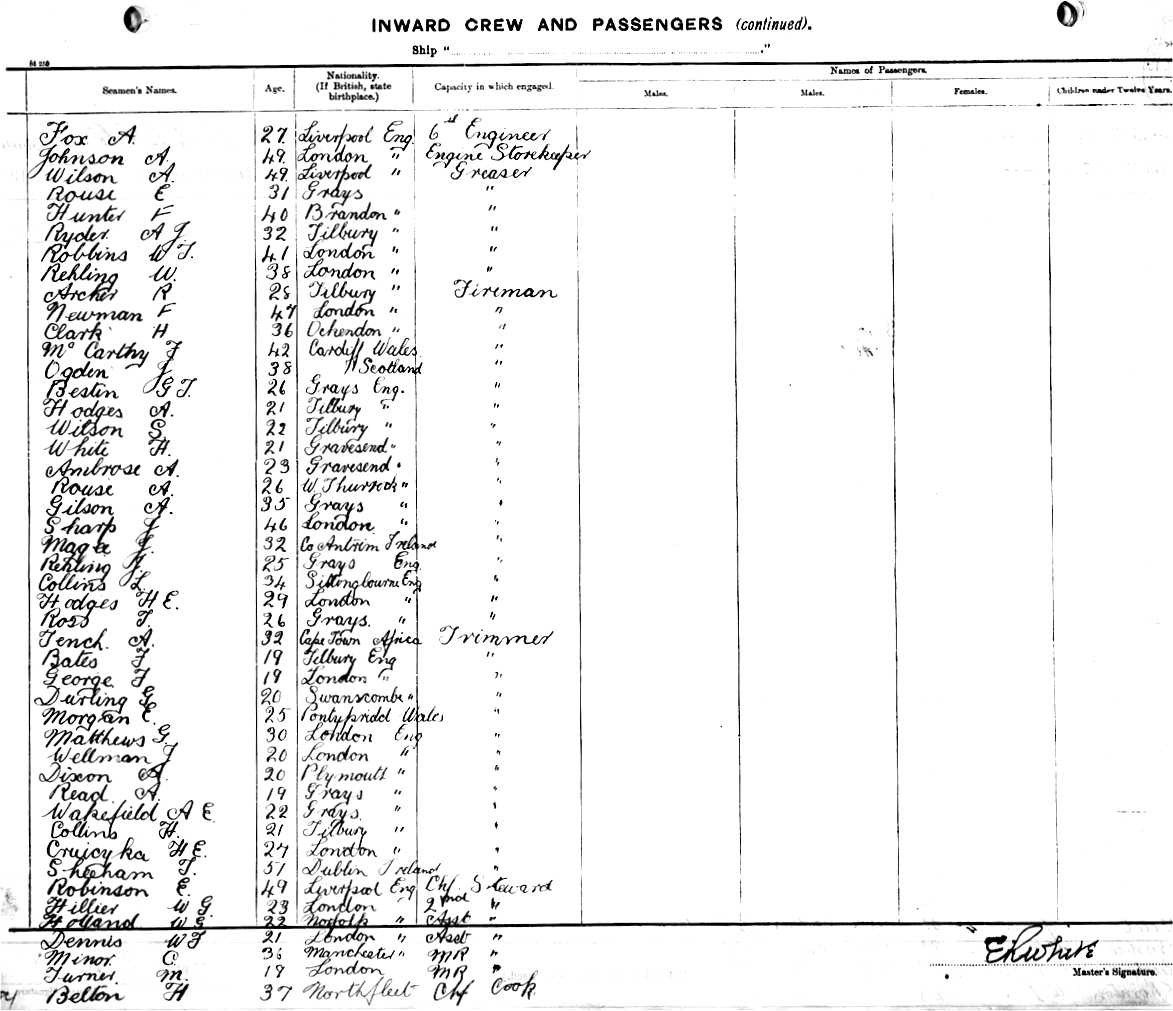 INWARD CREW AND PASSENGERS (continued).
Ship " "
Seamen's Names. Age. Nationality. (If British, state birthplace.) Capacity in which engaged. Names of Passengers.
Males. Males. Females. Children under Twelve Years.
Fox A. 27 Liverpool Eng. 6th Engineer
Johnson A. 49 London " Engine Storekeeper
Wilson A. 49 Liverpool " Greaser
Rouse E 31 Grays "
Hunter F 40 Brandon " "
Ryder A J. 32 Tilbury " "
Robbins W T. 41 London " "
Rehling W. 38 London " "
Archer R 28 Tilbury " Fireman
Newman F 47 London " "
Clark H 36 Ockendon " "
Mc Carthy J 42 Cardiff Wales "
Ogden J 38 Scotland "
Bestin G T. 26 Grays Eng. "
Hodges A. 21 Tilbury " "
Wilson S. 22 Tilbury " "
White H. 21 Gravesend " "
Ambrose A. 23 Gravesend " "
Rouse A. 26 W Thurrock " "
Gilson A. 35 Grays " "
Sharp J 46 London " "
Magee J. 32 Co Antrim Ireland "
Rehling J. 25 Grays Eng. "
Collins L. 34 Sittingbourne Eng "
Hodges H E. 29 London " "
Ross T. 26 Grays. " "
Tench. A. 32 Cape Town Africa Trimmer
Bates F 19 Tilbury Eng "
George F 19 London " "
Durling G 20 Swanscombe " "
Morgan E. 25 Pontypridd Wales "
Matthews G. 30 London Eng "
Wellman J 20 London " "
Dixon A. 20 Plymouth " "
Read A. 19 Grays " "
Wakefield A E 22 Grays. " "
Collins H. 21 Tilbury " "
Cruicyka H E. 27 London " "
Sheeham T. 51 Dublin Ireland "
Robinson E. 49 Liverpool Eng Chf. Steward
Hillier W G. 23 London " 2nd "
Holland W G 22 Norfolk " Asst "
Dennis W J 21 London " Asst "
Minor. C. 36 Manchester " MR "
Turner. M. 19 London MR "
Belton H 37 Northfleet Chf Cook.
E R White
Master's Signature.